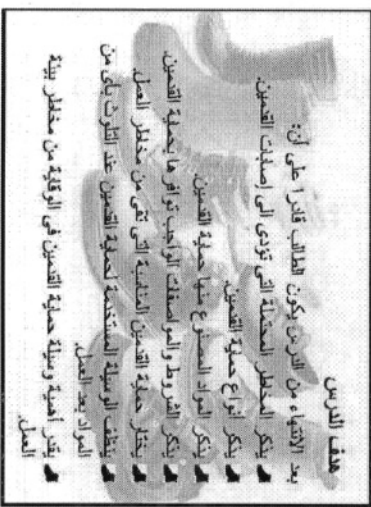 هدف الدرس
بعد الانتهاء من الدرس يكون الطالب قادرا على أن:
يذكر المخاطر المحتملة التى تؤدى الى إصابات القدمين.
يذكر أنواع حماية القدمين.
يذكر المواد المصنوع منها حماية القدمين.
يذكر الشروط والمواصفات الواجب توافرها بحماية القدمين.
يختار حماية القدمين المناسبة التى تقى من مخاطر العمل.
ينظف الوسيلة المستخدمة لحماية القدمين عند التلوث بأى من
المواد بعد العمل.
يقدر أهمية وسيلة حماية القدمين فى الوقاية من مخاطر بيئة
العمل.